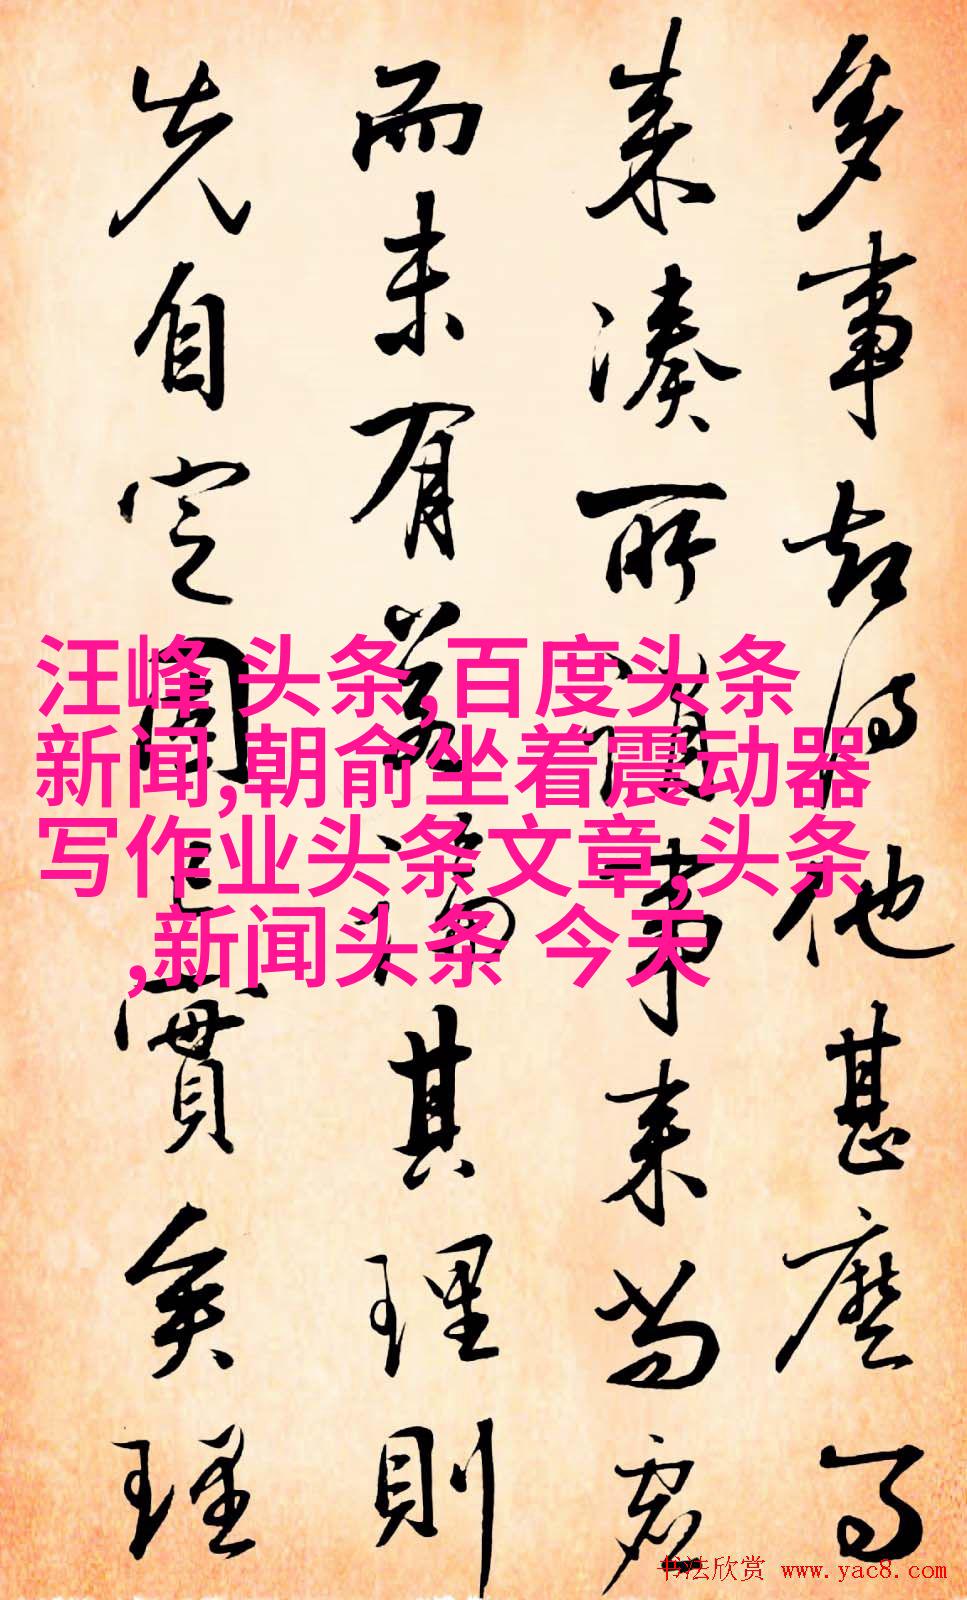 多事却他甚麼
来湊所謂事来尚虚
而未有若論其理則
先自定固已實矣理
汪峰 头条,百度头条
新闻,朝俞坐着震动器
写作业头条文章,头条
,新闻头条 今天
书法欣赏 www.yac8.com